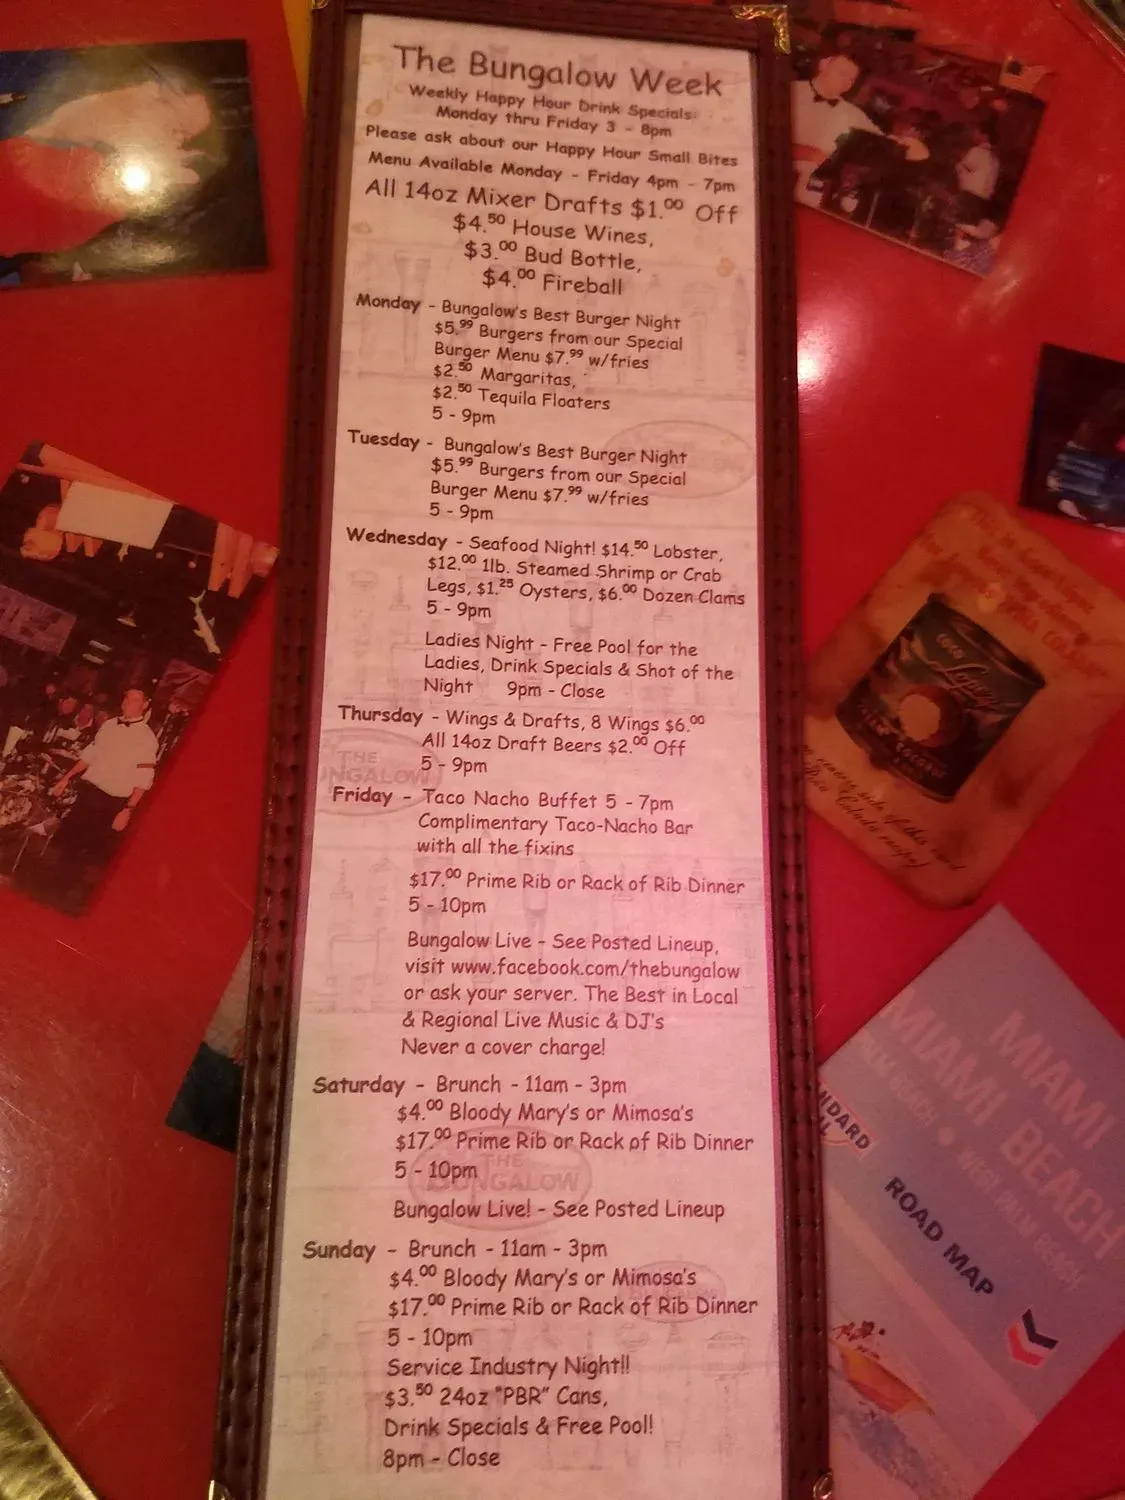 The Bungalow Week
Weekly Happy Hour Drink Specials:
Monday thru Friday 3 - 8pm
Please ask about our Happy Hour Small Bites
Menu Available Monday - Friday 4pm - 7pm
All 14oz Mixer Drafts $1.00 Off
$4.50 House Wines,
$3.00 Bud Bottle,
$4.00 Fireball
Monday - Bungalow's Best Burger Night
$5.99 Burgers from our Special
Burger Menu $7.99 w/fries
$2.50 Margaritas,
$2.50 Tequila Floaters
5 - 9pm
Tuesday - Bungalow's Best Burger Night
$5.99 Burgers from our Special
Burger Menu $7.99 w/fries
5 - 9pm
Wednesday - Seafood Night! $14.50 Lobster,
$12.00 1lb. Steamed Shrimp or Crab
Legs, $1.25 Oysters, $6.00 Dozen Clams
5 - 9pm
Ladies Night - Free Pool for the
Ladies, Drink Specials & Shot of the
Night 9pm - Close
Thursday - Wings & Drafts, 8 Wings $6.00
All 14oz Draft Beers $2.00 Off
5 - 9pm
THE
Friday - Taco Nacho Buffet 5 - 7pm
Complimentary Taco-Nacho Bar
with all the fixins
$17.00 Prime Rib or Rack of Rib Dinner
5 - 10pm
Bungalow Live - See Posted Lineup,
visit www.facebook.com/thebungalow
or ask your server. The Best in Local
& Regional Live Music & DJ's
Never a cover charge!
Saturday - Brunch - 11am - 3pm
$4.00 Bloody Mary's or Mimosa's
$17.00 Prime Rib or Rack of Rib Dinner
5 - 10pm
THE
BUNGALOW
Bungalow Live! - See Posted Lineup
Sunday - Brunch - 11am - 3pm
$4.00 Bloody Mary's or Mimosa's
$17.00 Prime Rib or Rack of Rib Dinner
5 - 10pm
Service Industry Night!!
$3.50 24oz "PBR" Cans,
Drink Specials & Free Pool!
8pm - Close
COCO
Lopez
MIAMI
MIAMI BEACH
PALM BEACH • WEST PALM BEACH
ROAD MAP